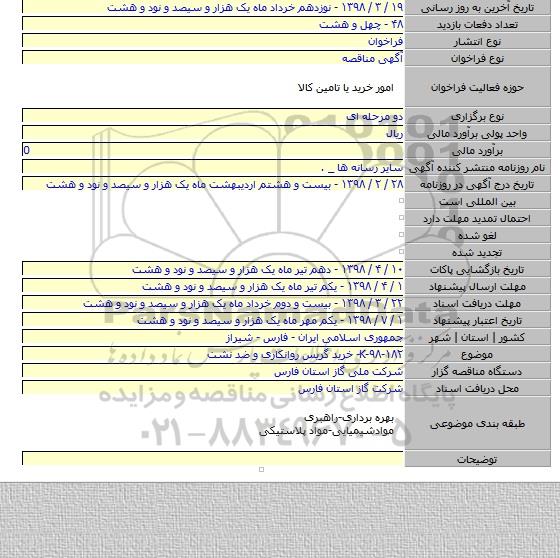 تاریخ آخرین به روز رسانی ۱۹ / ۳ / ۱۳۹۸ - نوزدهم خرداد ماه یک هزار و سیصد و نود و هشت
تعداد دفعات بازدید ۴۸ - چهل و هشت
نوع انتشار فراخوان
نوع فراخوان آگهی مناقصه
حوزه فعالیت فراخوان امور خرید یا تامین کالا
نوع برگزاری دو مرحله ای
واحد پولی برآورد مالی ریال
برآورد مالی 0
نام روزنامه منتشر کننده آگهی سایر رسانه ها _ .
تاریخ درج آگهی در روزنامه ۲۸ / ۲ / ۱۳۹۸ - بیست و هشتم اردیبهشت ماه یک هزار و سیصد و نود و هشت
بین المللی است
احتمال تمدید مهلت دارد
لغو شده
تجدید شده
تاریخ بازگشایی پاکات ۱۰ / ۴ / ۱۳۹۸ - دهم تیر ماه یک هزار و سیصد و نود و هشت
مهلت ارسال پیشنهاد ۱ / ۴ / ۱۳۹۸ - یکم تیر ماه یک هزار و سیصد و نود و هشت
مهلت دریافت اسناد ۲۲ / ۳ / ۱۳۹۸ - بیست و دوم خرداد ماه یک هزار و سیصد و نود و هشت
تاریخ اعتبار پیشنهاد ۱ / ۷ / ۱۳۹۸ - یکم مهر ماه یک هزار و سیصد و نود و هشت
کشور | استان | شهر جمهوری اسلامی ایران - فارس - شیراز
موضوع K-۹۸-۱۸۲- خرید گریس روانکاری و ضد نشت
دستگاه مناقصه گزار شرکت ملی گاز استان فارس
محل دریافت اسناد شرکت گاز استان فارس
پایگاه اطلاع رسانی مناقصه و مزایده
طبقه بندی موضوعی بهره برداری-راهبری
موادشیمیایی-مواد پلاستیکی
۰۲۱-۸۸۳۴۹۶۷۰-۵
توضیحات